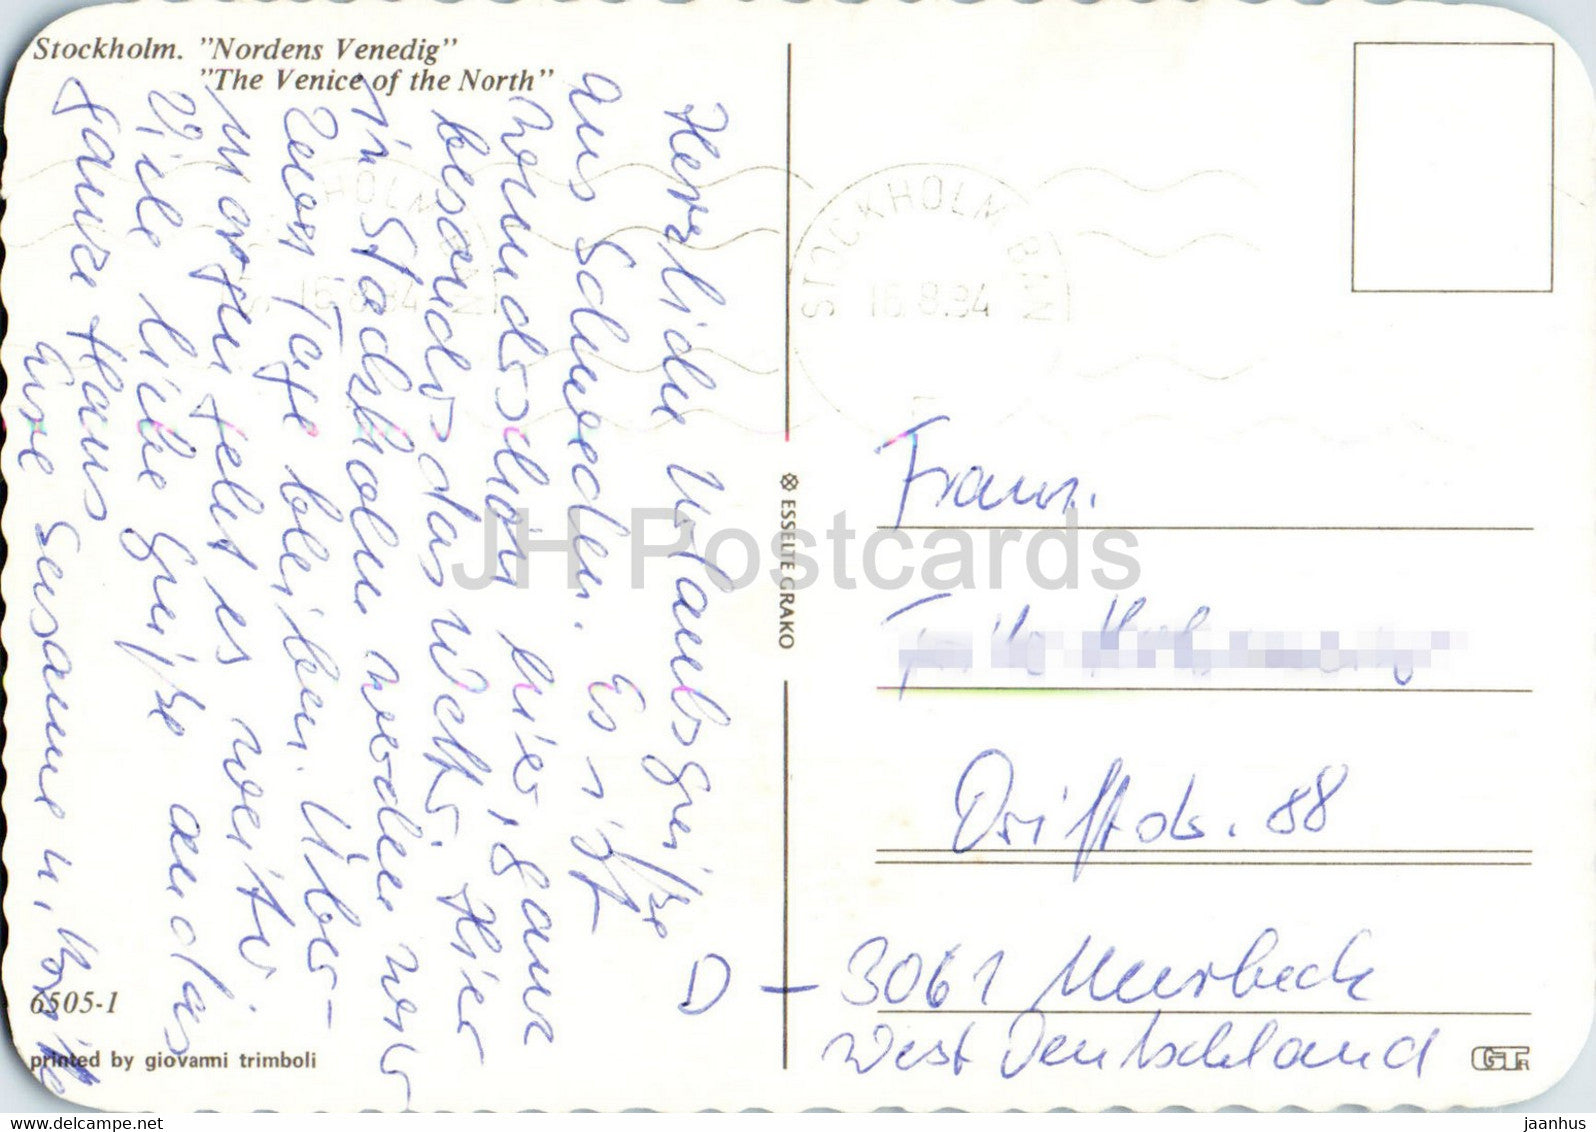 Stockholm. "Nordens Venedig"
"The Venice of the North"
Herzliche Urlaubsgrüße
aus Schweden. Es ist
wunderschön hier, ganz
besonders das Wetter. Hier
in Stockholm werden wir
zwei Tage bleiben. Über-
morgen geht es weiter.
Viele liebe Grüße an das
ganze Haus
Eure Susanne u.
STOCKHOLM BAN
16.8.94
STOCKHOLM BAN
16.8.94
ESSELTE GRAKO
JH Postcards
Fam.
Driftstr. 88
D - 3061 Meerbeck
West Deutschland
6505-1
printed by giovanni trimboli
delcampe.net
jaanhus